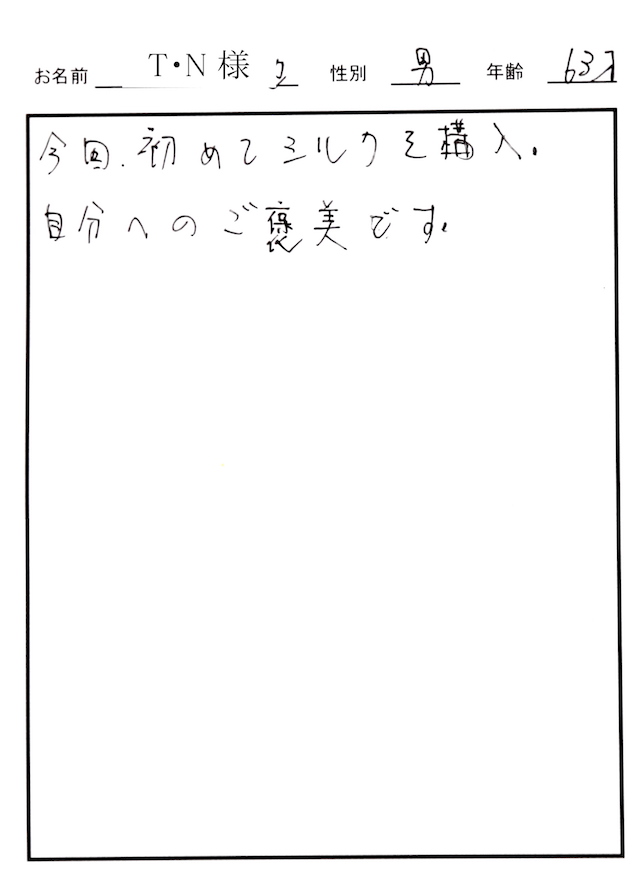 お名前 T・N様 性別 男 年齢 63才
今回、初めてシルクを購入。
自分へのご褒美です。